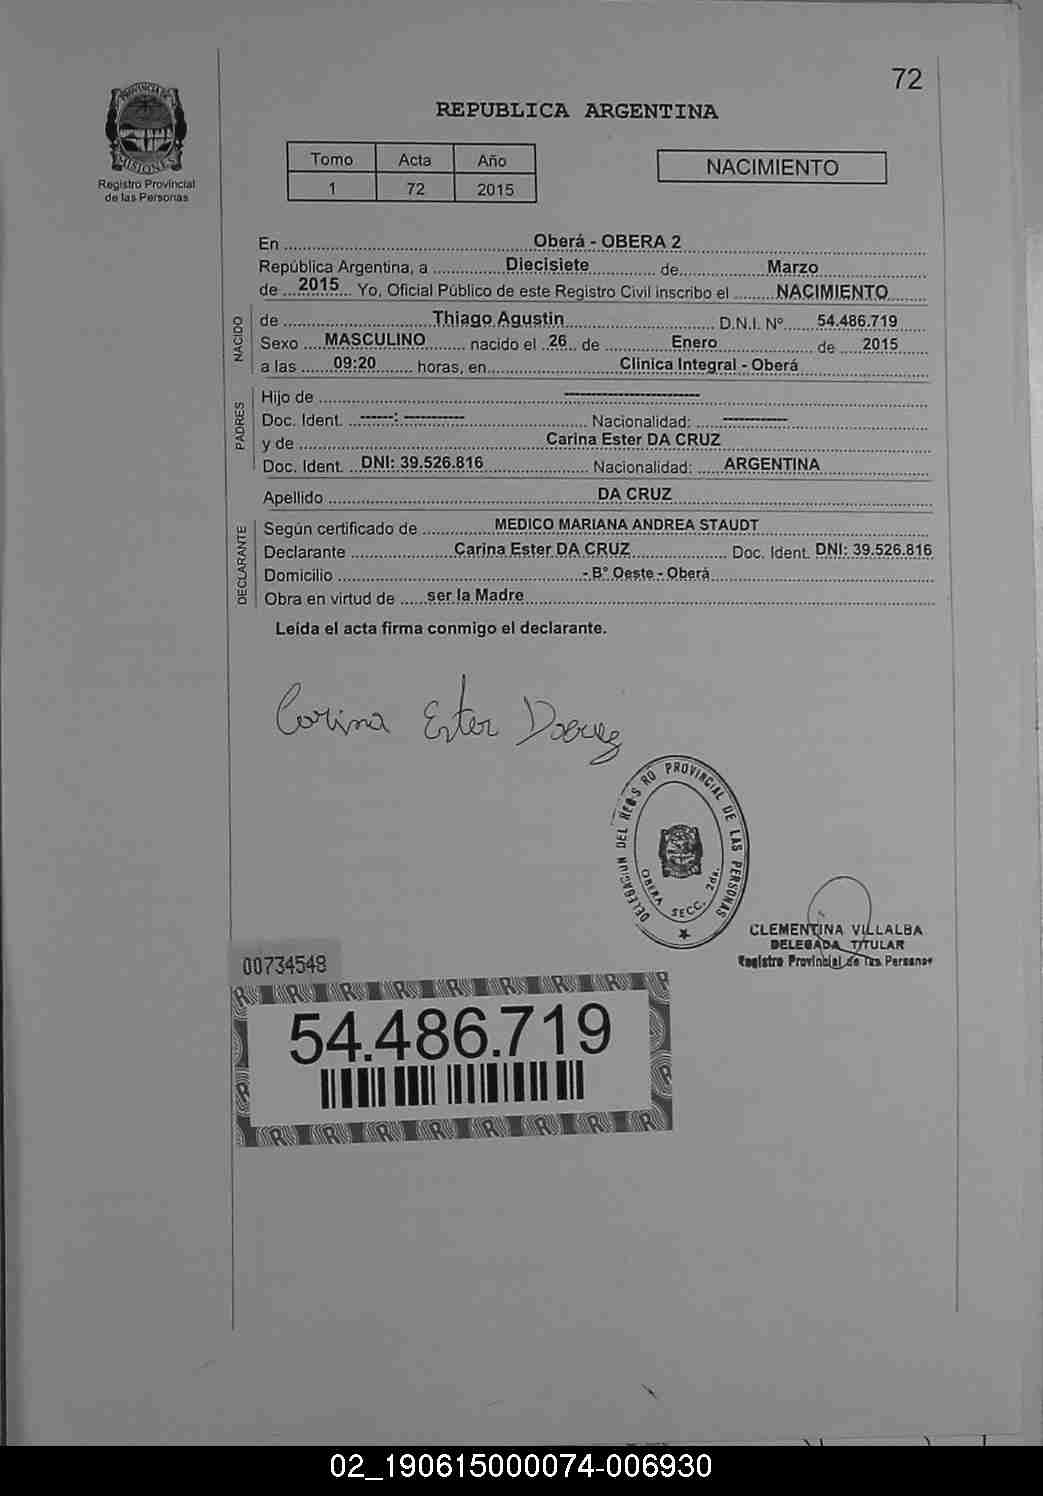 72
PROVINCIA DE
MISIONES
Registro Provincial
de las Personas
REPUBLICA ARGENTINA
Tomo Acta Año
1 72 2015
NACIMIENTO
En Oberá - OBERA 2
República Argentina, a Diecisiete de Marzo
de 2015 Yo, Oficial Público de este Registro Civil inscribo el NACIMIENTO
NACIDO
de Thiago Agustin D.N.I. Nº 54.486.719
Sexo MASCULINO nacido el 26 de Enero de 2015
a las 09:20 horas, en Clinica Integral - Oberá
PADRES
Hijo de ------------------------
Doc. Ident. ------: ----------- Nacionalidad: ------------
y de Carina Ester DA CRUZ
Doc. Ident. DNI: 39.526.816 Nacionalidad: ARGENTINA
Apellido DA CRUZ
DECLARANTE
Según certificado de MEDICO MARIANA ANDREA STAUDT
Declarante Carina Ester DA CRUZ Doc. Ident. DNI: 39.526.816
Domicilio - B° Oeste - Oberá
Obra en virtud de ser la Madre
Leida el acta firma conmigo el declarante.
Carina Ester Dacruz
DELEGACION DEL REGISTRO PROVINCIAL DE LAS PERSONAS
OBERA SECC. 2da.
CLEMENTINA VILLALBA
DELEGADA TITULAR
Registro Provincial de las Personas
00734548
54.486.719
02_190615000074-006930